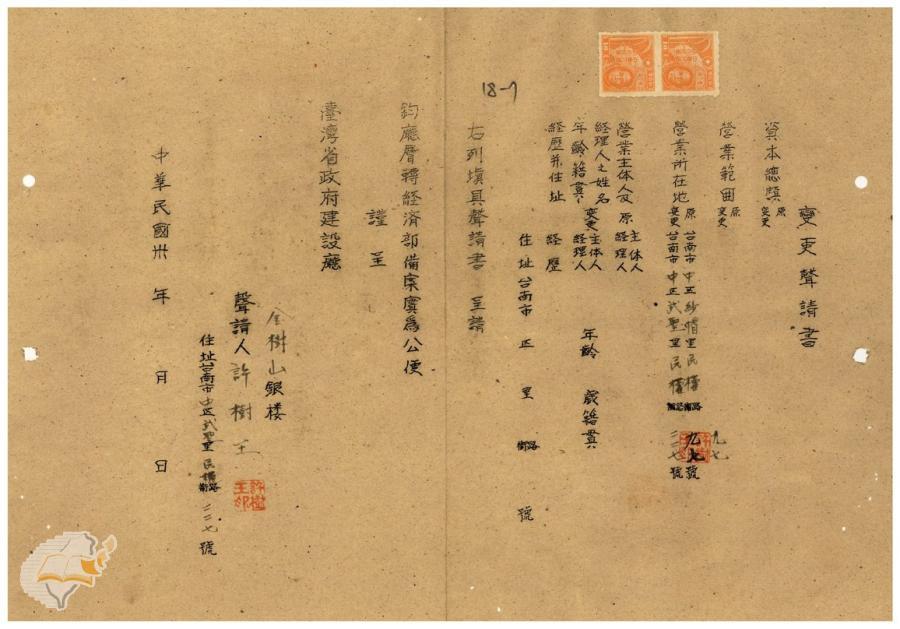 變更聲請書
資本總額 原 變更
營業範囲 原 變更
營業所在地 原 台南市中正紗帽里民權街路九七號 九七
變更 台南市中正武聖里民權街路二二七號
營業主体人及 原 主体人 經理人
經理人之姓名
年齡籍貫 變更 主体人 經理人 年齡 歲籍貫
經歷并住址 經歷
住址台南市 正 里 街路 號
右列塡具聲請書 呈請
18-7
鈞廳層轉經済部備案實為公便
謹呈
臺灣省政府建設廳
金樹山銀楼
聲請人許樹王
許樹王印
住址台南市中正武聖里民權街路二二七號
中華民國卅 年 月 日